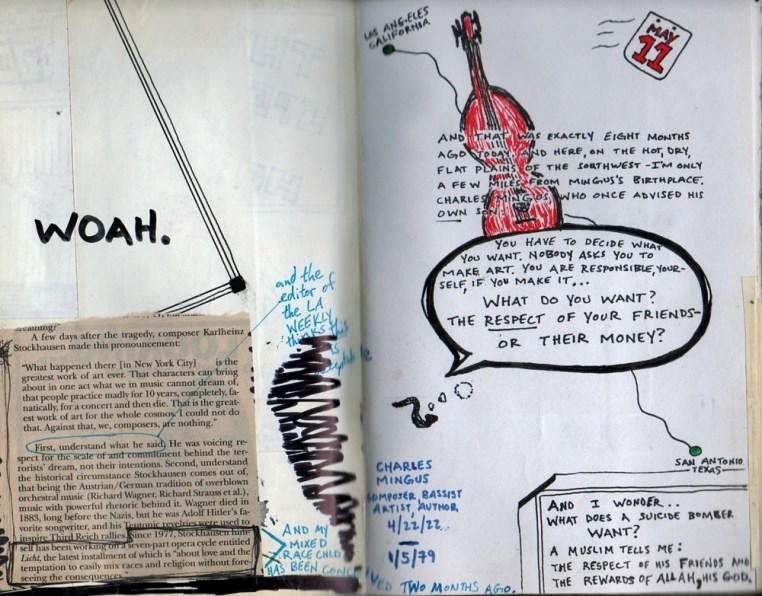 WOAH.
dreaming?"
A few days after the tragedy, composer Karlheinz
Stockhausen made this pronouncement:
"What happened there [in New York City] is the
greatest work of art ever. That characters can bring
about in one act what we in music cannot dream of,
that people practice madly for 10 years, completely, fa-
natically, for a concert and then die. That is the great-
est work of art for the whole cosmos. I could not do
that. Against that, we, composers, are nothing."
First, understand what he said. He was voicing re-
spect for the scale of and commitment behind the ter-
rorists' dream, not their intentions. Second, understand
the historical circumstance Stockhausen comes out of,
that being the Austrian/German tradition of overblown
orchestral music (Richard Wagner, Richard Strauss et al.),
music with powerful rhetoric behind it. Wagner died in
1883, long before the Nazis, but he was Adolf Hitler's fa-
vorite songwriter, and his Teutonic revelries were used to
inspire Third Reich rallies. Since 1977, Stockhausen him-
self has been working on a seven-part opera cycle entitled
Licht, the latest installment of which is "about love and the
temptation to easily mix races and religion without fore
seeing the consequences."
and the
editor of
the LA
WEEKLY
thinks this
is
AND MY
MIXED
RACE CHLD
HAS BEEN CONCEIVED TWO MONTHS AGO.
LOS ANGELES
CALIFORNIA
MAY
11
AND THAT WAS EXACTLY EIGHT MONTHS
AGO TODAY, AND HERE, ON THE HOT, DRY,
FLAT PLAINS OF THE SOUTHWEST - I'M ONLY
A FEW MILES FROM MINGUS'S BIRTHPLACE.
CHARLES MINGUS WHO ONCE ADVISED HIS
OWN SON:
YOU HAVE TO DECIDE WHAT
YOU WANT. NOBODY ASKS YOU TO
MAKE ART. YOU ARE RESPONSIBLE, YOUR-
SELF, IF YOU MAKE IT...
WHAT DO YOU WANT?
THE RESPECT OF YOUR FRIENDS-
OR THEIR MONEY?
CHARLES
MINGUS
COMPOSER BASSIST
ARTIST, AUTHOR
4/22/22
1/5/79
SAN ANTONIO
TEXAS
AND I WONDER..
WHAT DOES A SUICIDE BOMBER
WANT?
A MUSLIM TELLS ME:
THE RESPECT OF HIS FRIENDS AND
THE REWARDS OF ALLAH, HIS GOD.